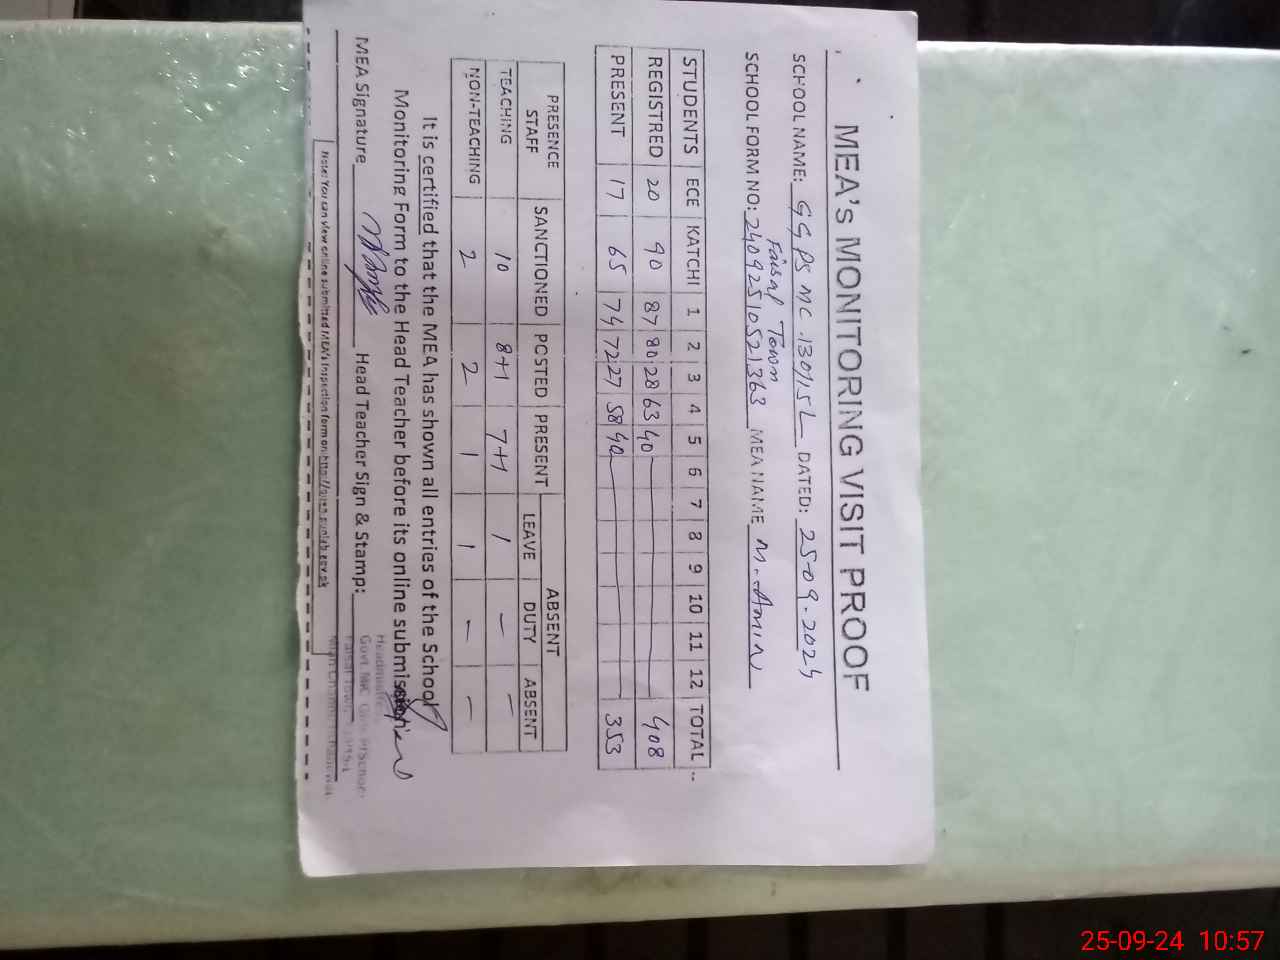 MEA's MONITORING VISIT PROOF
SCHOOL NAME: GGPS MC 130/15L DATED: 25-09-2024
Faisal Town
SCHOOL FORM NO: 24092510521363 MEA NAME M. Amin
STUDENTS ECE KATCHI 1 2 3 4 5 6 7 8 9 10 11 12 TOTAL
REGISTRED 20 90 87 80 28 63 40 408
PRESENT 17 65 74 72 27 58 40 353
PRESENCE STAFF SANCTIONED POSTED PRESENT ABSENT
LEAVE DUTY ABSENT
TEACHING 10 8+1 7+1 1 - -
NON-TEACHING 2 2 1 1 - -
It is certified that the MEA has shown all entries of the School
Monitoring Form to the Head Teacher before its online submission
MEA Signature Head Teacher Sign & Stamp:
Headmistress
Govt. M/C Girls P/School
Faisal Town
Mian Channu
Note: You can view online submitted MEA's Inspection form on:
25-09-24 10:57